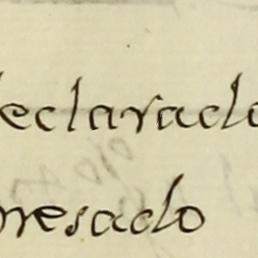 declarado
presado